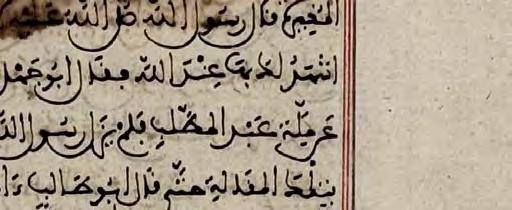 المغيرة فقال رسول الله صلى الله عليه
اشهد لك بها عند الله فقال ابو جهل
عن ملة عبد المطلب فلم يزل رسول الله
تلك المقالة حتى قال ابو طالب ءا